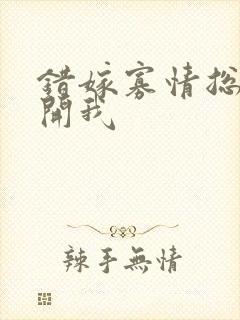 錯嫁寡情总
開我
辣手無情